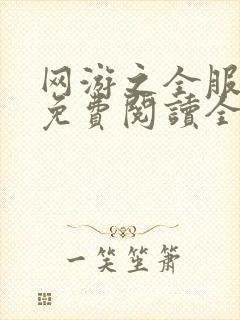 网游之全服
免費閱讀全
一笑笙簫